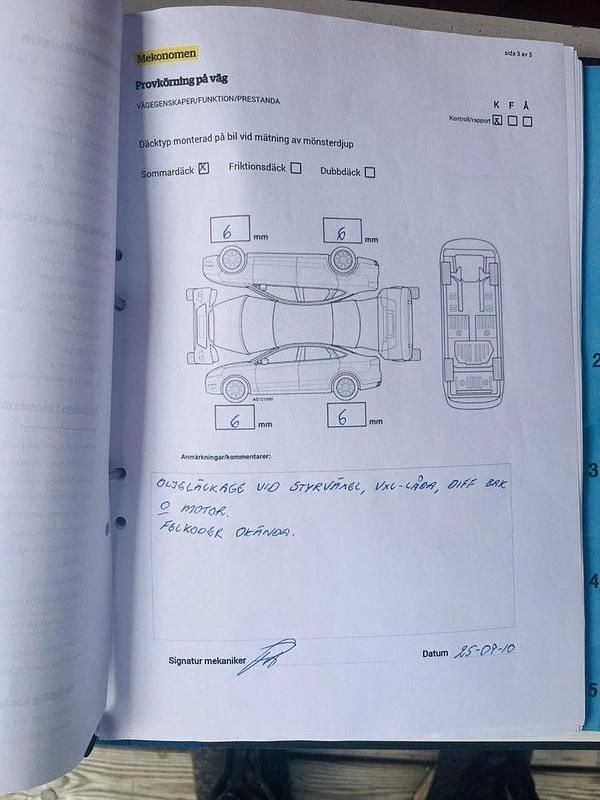 Mekonomen
sida 3 av 3
Provkörning på väg
VÄGEGENSKAPER/FUNKTION/PRESTANDA
K F Å
Kontroll/rapport X
Däcktyp monterad på bil vid mätning av mönsterdjup
Sommardäck X Friktionsdäck Dubbdäck
6 mm 6 mm
AD121980
6 mm 6 mm
Anmärkningar/kommentarer:
OLJELÄCKAGE VID STYRVÄXEL, VXL-LÅDA, DIFF BAK
O MOTOR.
FELKODER OKÄNDA.
Signatur mekaniker
Datum 25-09-10
2
3
4
5